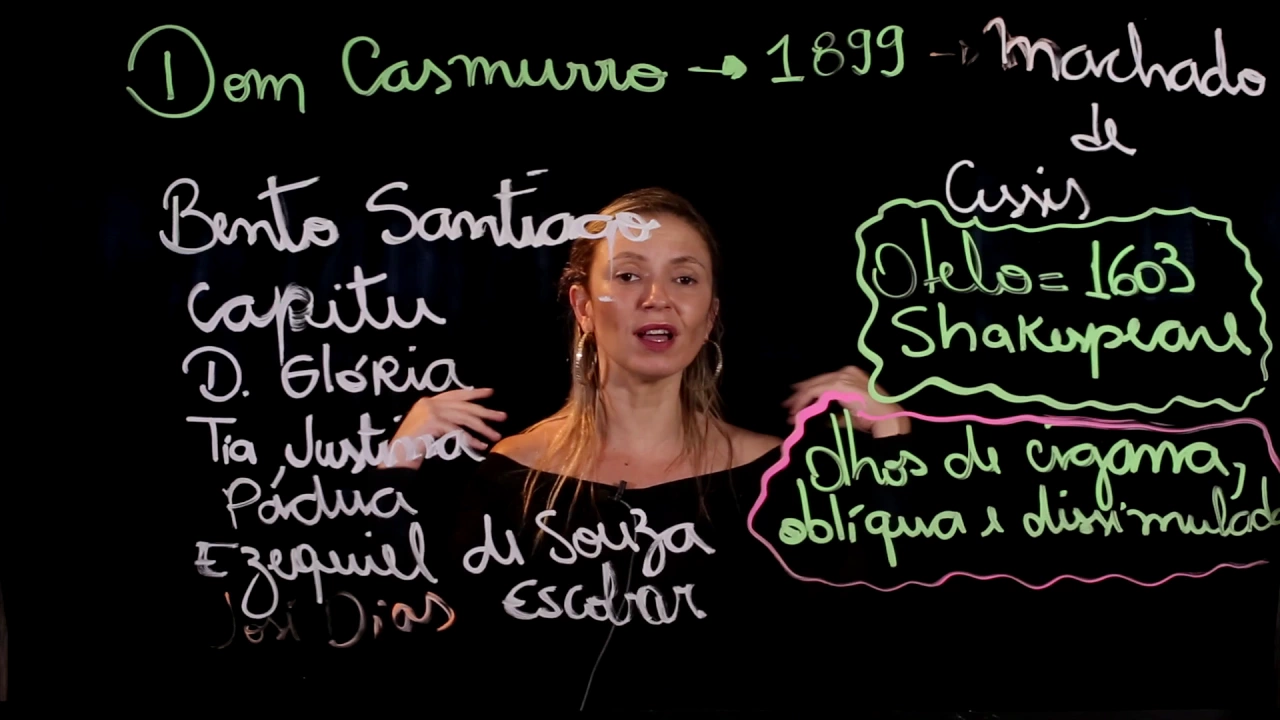 Dom Casmurro → 1899 → Machado
de
Assis
Bento Santiago
Capitu
D. Glória
Tia Justina
Pádua
Ezequiel de Souza
Escobar
José Dias
Otelo = 1603
Shakespeare
Olhos de cigana,
oblíqua e dissimulad